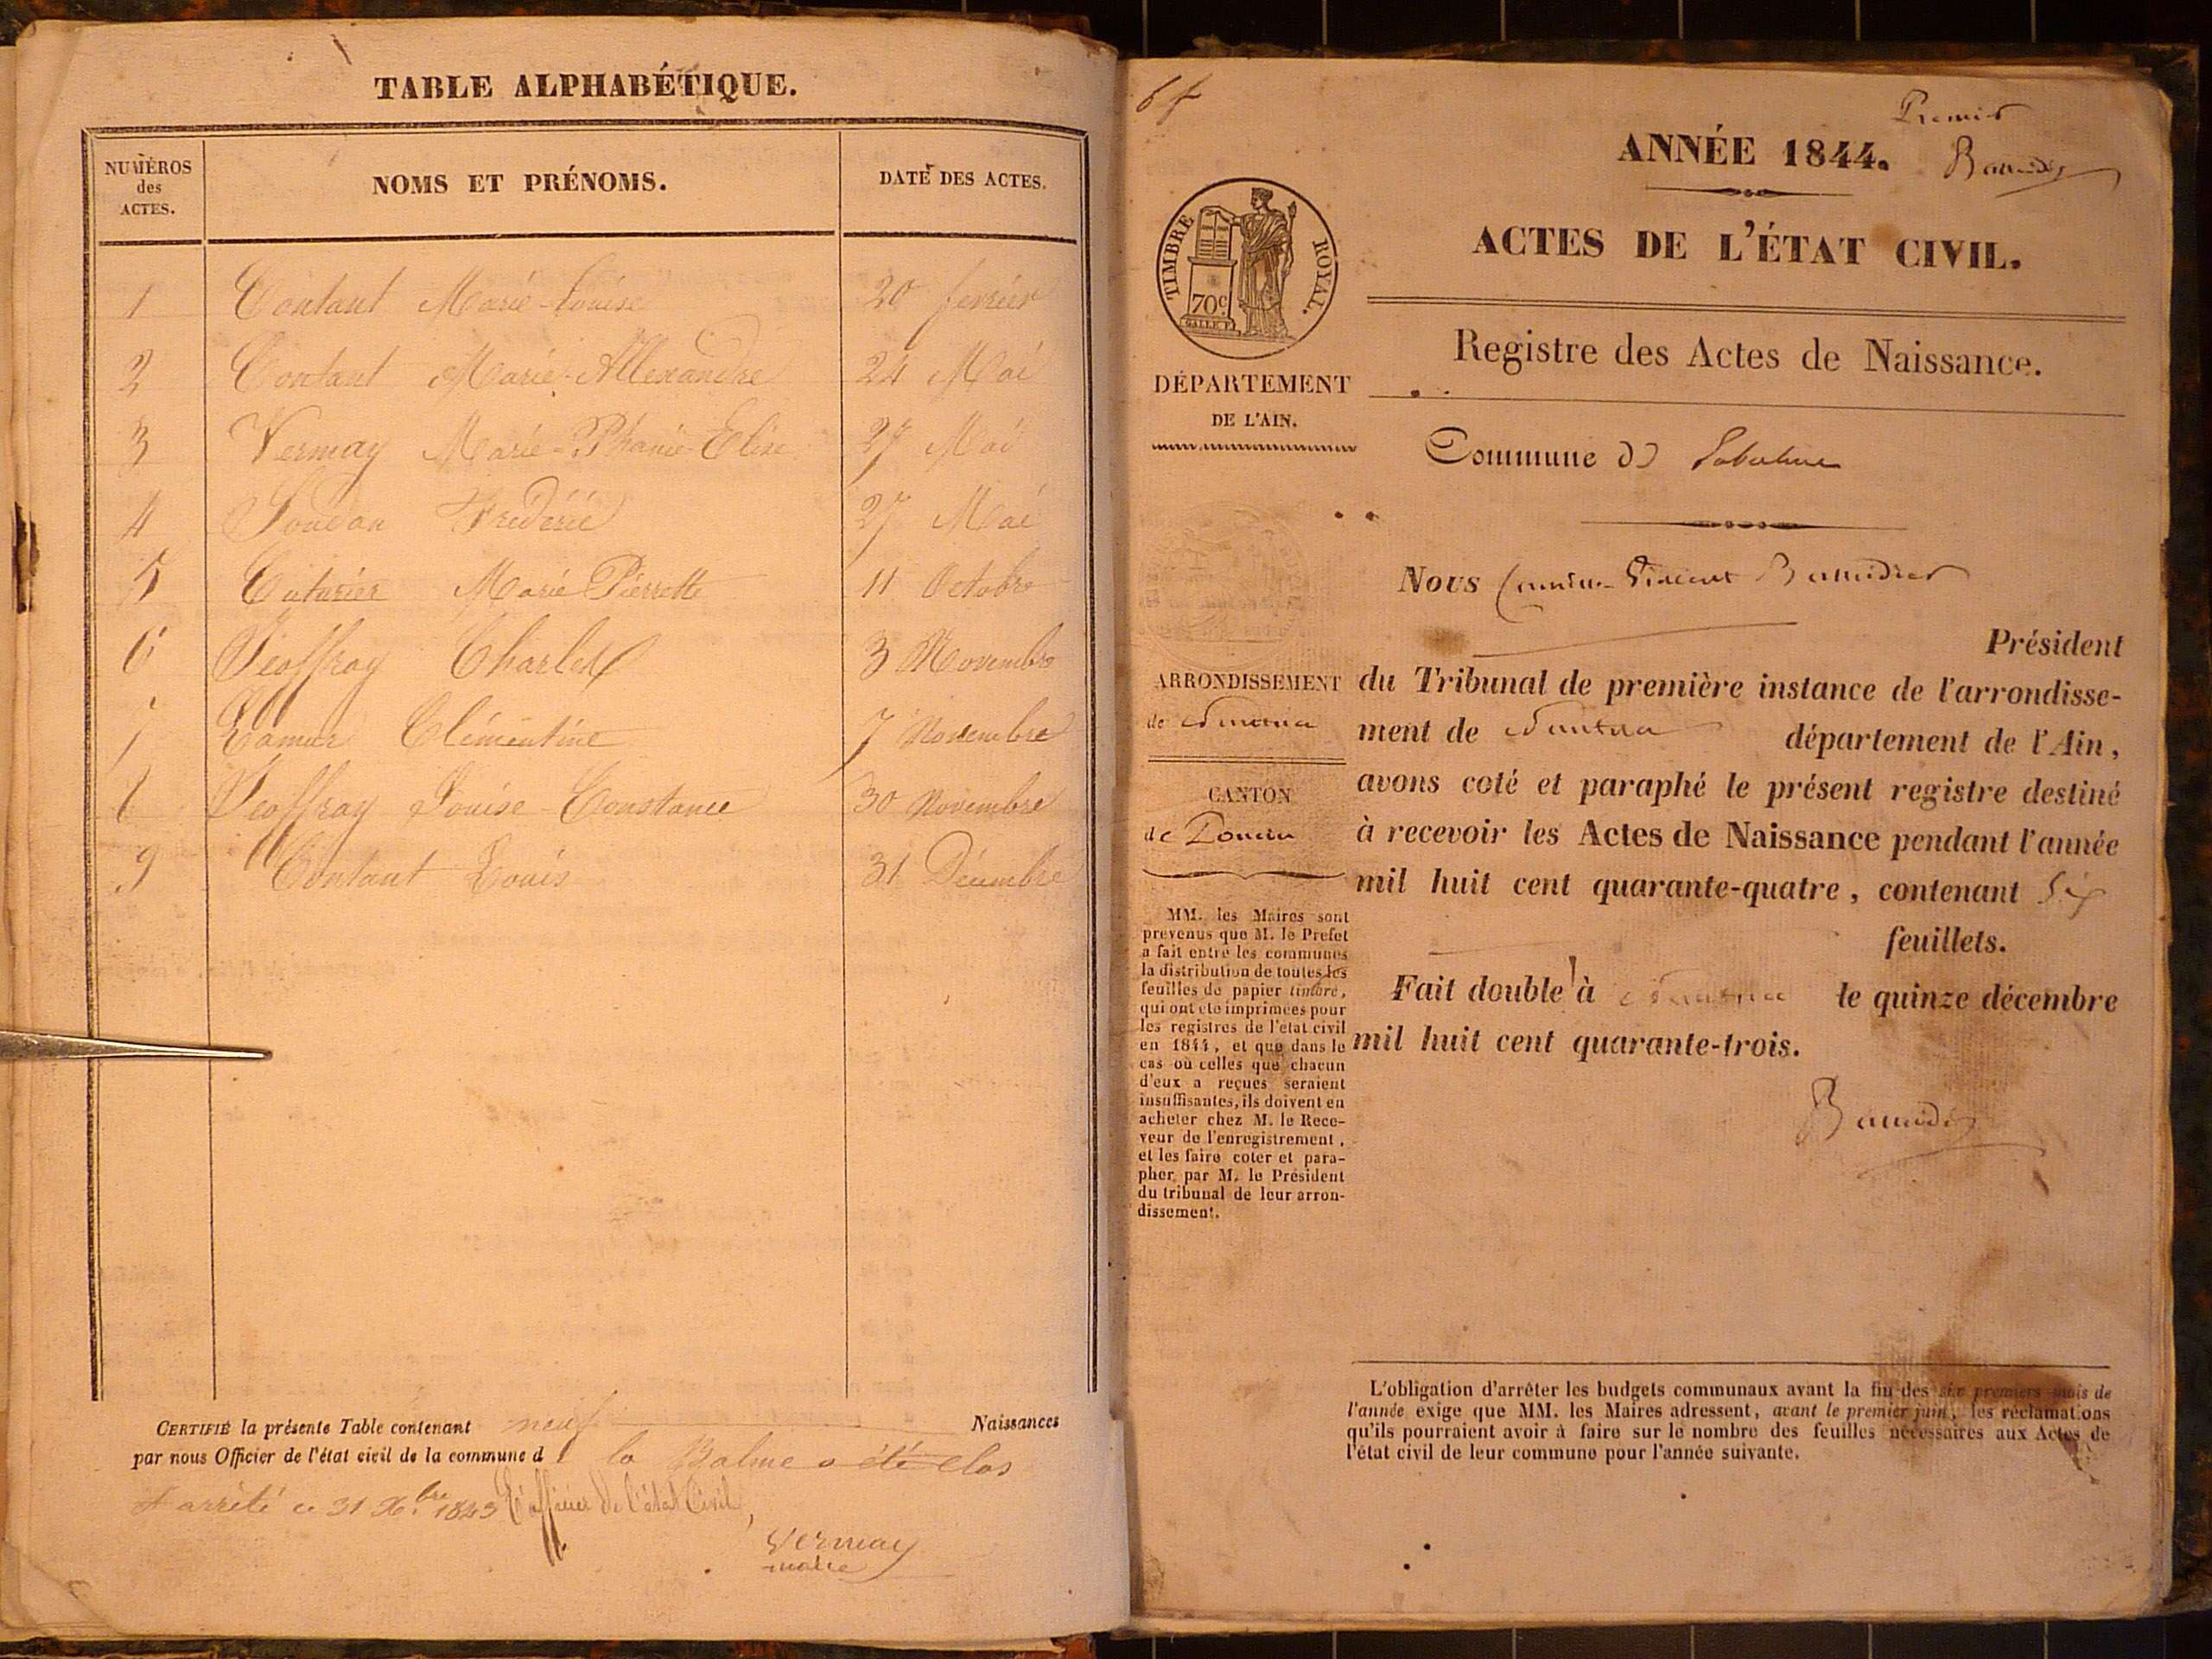 TABLE ALPHABÉTIQUE.
NUMÉROS des ACTES.
NOMS ET PRÉNOMS.
DATE DES ACTES.
1 Contant Marie-Louise 20 février
2 Contant Marie-Allexandre 24 Mai
3 Vermay Marie-Phanie-Elise 27 Mai
4 Frédéric 27 Mai
5 Cuturier Marie Pierrette 11 Octobre
6 Jeoffray Charles 3 Novembre
7 Clémentine 7 Novembre
8 Jeoffray Louise-Constance 30 Novembre
9 Contant Louis 31 Décembre
CERTIFIÉ la présente Table contenant neuf Naissances
par nous Officier de l'état civil de la commune d la Balme a été clos
et arrêté ce 31 Xbre 1843 L'officier de l'état Civil,
Vermay
maire
Premier
ANNÉE 1844.
ACTES DE L'ÉTAT CIVIL.
TIMBRE ROYAL.
70c
Registre des Actes de Naissance.
DÉPARTEMENT
DE L'AIN.
Commune de Labalme
Nous Vincent
Président
ARRONDISSEMENT
de Nantua
CANTON
de Poncin
du Tribunal de première instance de l'arrondisse-
ment de Nantua département de l'Ain,
avons coté et paraphé le présent registre destiné
à recevoir les Actes de Naissance pendant l'année
mil huit cent quarante-quatre, contenant six
feuillets.
Fait double à Nantua le quinze décembre
mil huit cent quarante-trois.
MM. les Maires sont
prévenus que M. le Préfet
a fait entre les communes
la distribution de toutes les
feuilles de papier timbré,
qui ont été imprimées pour
les registres de l'état civil
en 1844, et que dans le
cas où celles que chacun
d'eux a reçues seraient
insuffisantes, ils doivent en
acheter chez M. le Rece-
veur de l'enregistrement,
et les faire coter et para-
pher par M. le Président
du tribunal de leur arron-
dissement.
L'obligation d'arrêter les budgets communaux avant la fin des six premiers mois de
l'année exige que MM. les Maires adressent, avant le premier juin, les réclamations
qu'ils pourraient avoir à faire sur le nombre des feuilles nécessaires aux Actes de
l'état civil de leur commune pour l'année suivante.